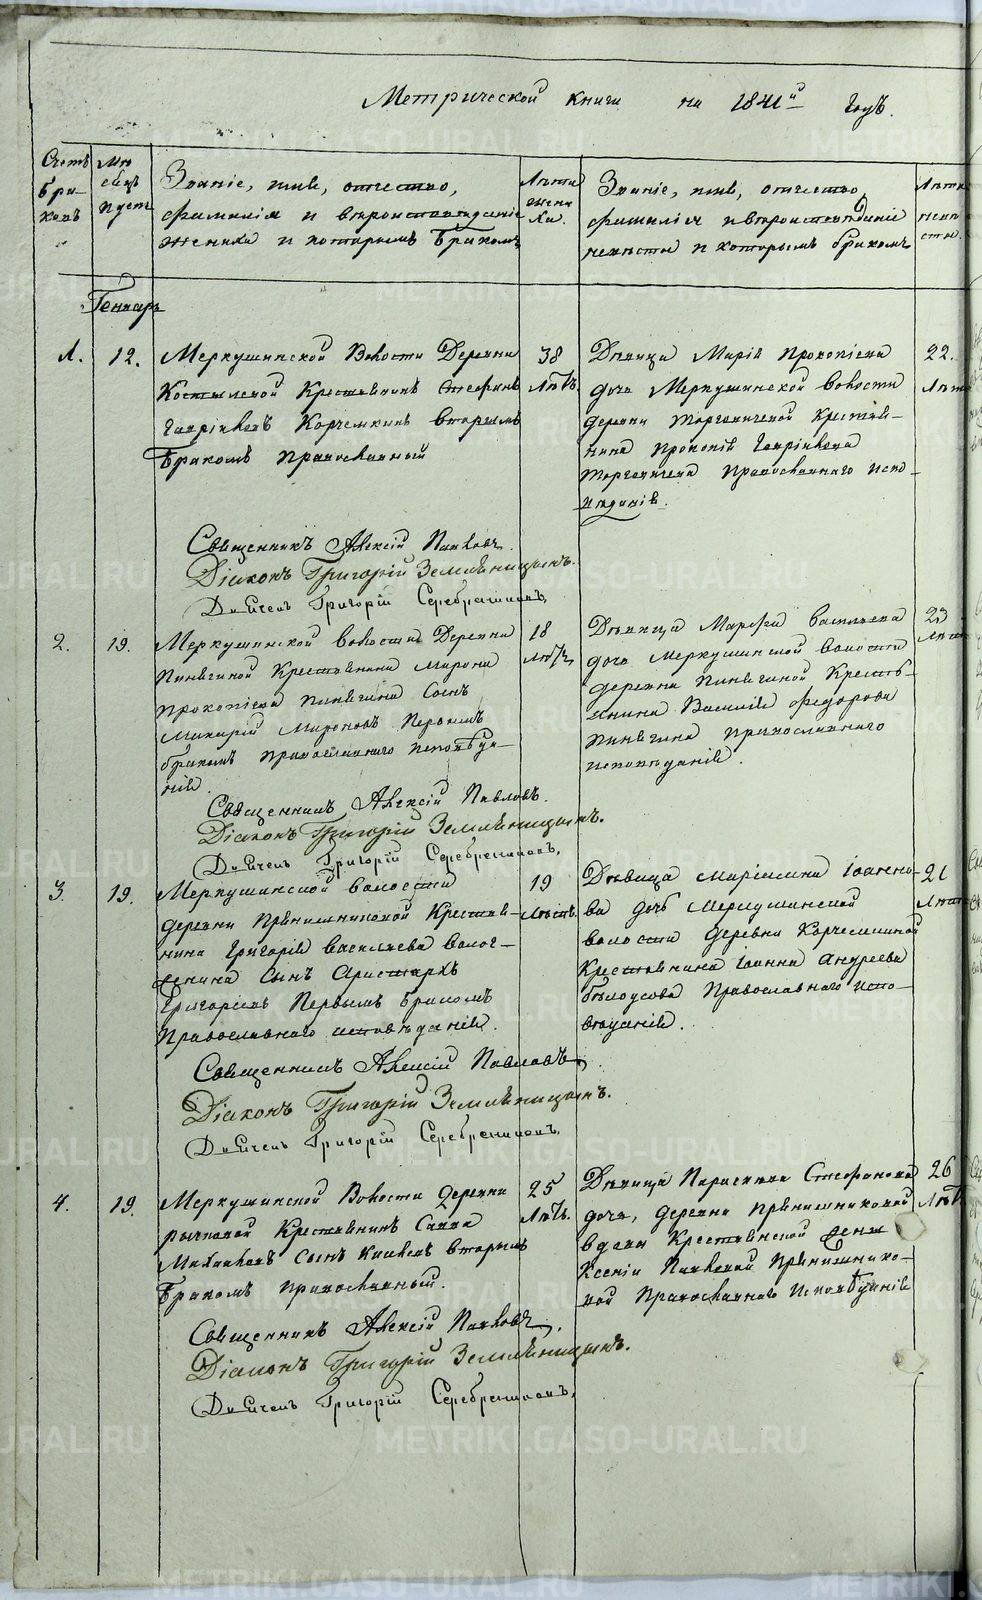 Метрической книги на 1841й годъ.
Счетъ браковъ
Месяцъ
Званіе, имя, отчество,
фамилія и вероисповѣданіе
жениха и которымъ бракомъ
Лѣта жениха.
Званіе, имя, отчество,
фамилія и вероисповѣданіе
невѣсты и которымъ бракомъ
Лѣта невѣсты.
Генварь
1. 12.
Меркушинской Волости Деревни
Крестьянинъ Стефанъ
Гавріиловъ Корчемкинъ вторымъ
Бракомъ Православный
38
Лѣтъ.
Дѣвица Марія Прокопіева
дочь Меркушинской волости
деревни Крестья-
нина Прокопія Гавріилова
Православнаго испо-
вѣданія.
22.
Лѣтъ
Священникъ Алексій Павловъ.
Діаконъ Григорій Земляницынъ.
Дьячекъ Григорій Серебрениковъ.
2. 19.
Меркушинской волости Деревни
Пинягиной Крестьянина Мирона
Прокопіева Пинягина Сынъ
Макарій Мироновъ Первымъ
бракомъ православнаго исповѣда-
нія.
18
Лѣтъ
Дѣвица Марѳа Васильева
дочь Меркушинской волости
деревни Пинягиной Кресть-
янина Василія Федорова
Пинягина православнаго
исповѣданія.
23
Лѣтъ
Священникъ Алексій Павловъ.
Діаконъ Григорій Земляницынъ.
Дьячекъ Григорій Серебрениковъ.
3. 19.
Меркушинской волости
деревни Прянишниковой Крестья-
нина Григорія Васильева Волог-
женина Сынъ Аристархъ
Григорьевъ Первымъ бракомъ
Православнаго исповѣданія.
19
Лѣтъ.
Дѣвица Маріамна Іоанно-
ва дочь Меркушинской
волости Деревни Корчемкиной
Крестьянина Іоанна Андреева
Бѣлоусова Православнаго испо-
вѣданія.
21
Лѣтъ
Священникъ Алексій Павловъ.
Діаконъ Григорій Земляницынъ.
Дьячекъ Григорій Серебрениковъ.
4. 19.
Меркушинской Волости Деревни
Рычковой Крестьянинъ Савва
Михайловъ Сынъ вторымъ
Бракомъ православный.
25
Лѣтъ.
Дѣвица Параскева Стефанова
дочь, деревни Прянишниковой
вдовы Крестьянской жены
Ксеніи Павловой Прянишнико-
вой Православнаго Исповѣданія
26
Лѣтъ
Священникъ Алексій Павловъ.
Діаконъ Григорій Земляницынъ.
Дьячекъ Григорій Серебрениковъ.
METRIKI.GASO-URAL.RU